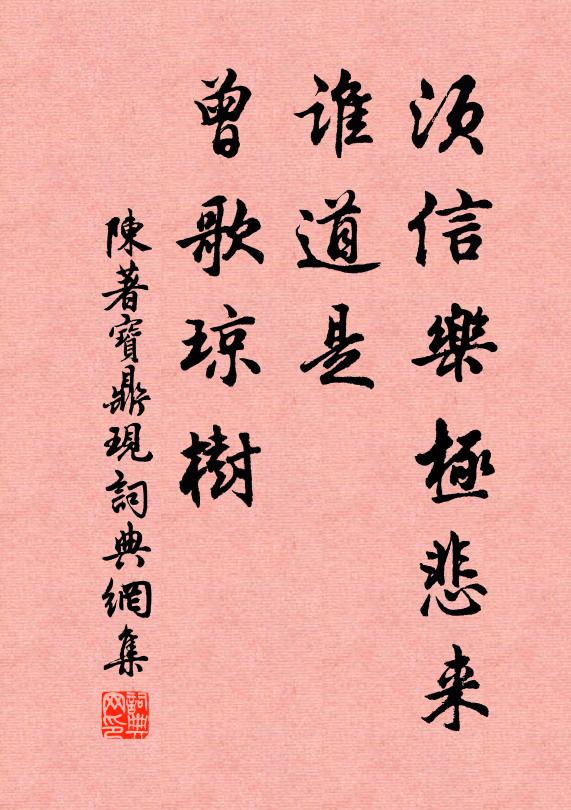 須信樂極悲来
誰道是
曾歌琼樹
陳著寶鼎現詞典網集
詞典网印